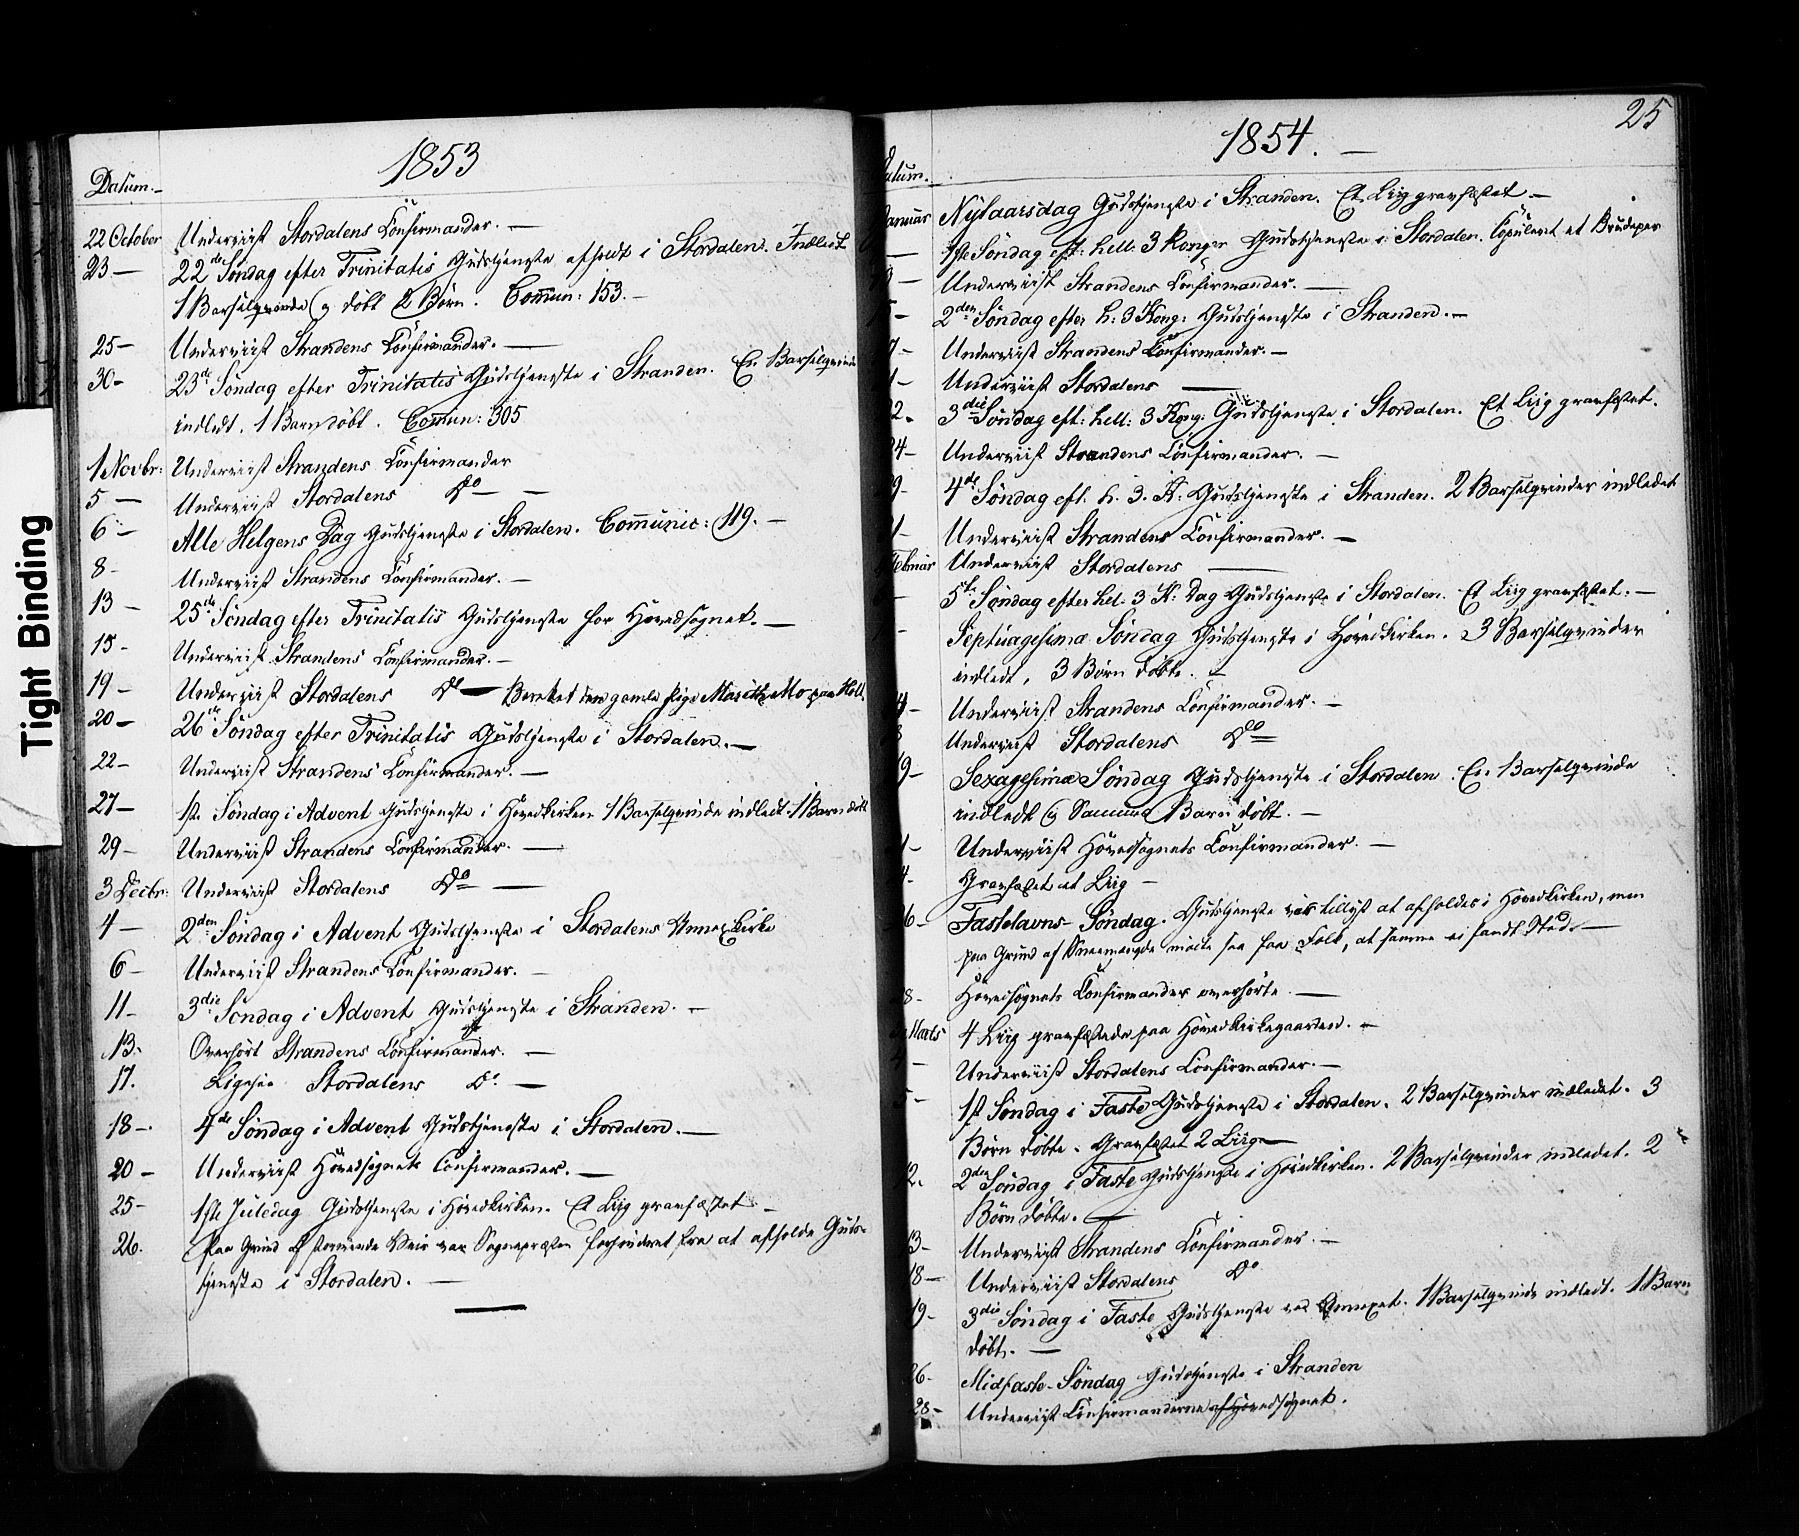 Tight Binding
1853
Datum.
22 October Underviist Stordalens Confirmander. —
23 — 22de Søndag efter Trinitatis Gudstjeneste afholdt i Stordalen. Indledt
1 Barselqvinde og døbt 2 Børn. Commun: 153. —
25 — Underviist Strandens Confirmander. —
30 - 23de Søndag efter Trinitatis Gudstjeneste i Stranden. En Barselqvinde
indledt. 1 Barn døbt. Commun: 305
1 Novbr: Underviist Strandens Confirmander
5 — Underviist Stordalens Do — —
6 — Alle Helgens Dag Gudstjeneste i Stordalen. Communic: 119. —
8 - Underviist Strandens Confirmander. —
13 — 25de Søndag efter Trinitatis Gudstjeneste for Hovedsognet. —
15 - Underviist Strandens Confirmander. —
19 - Underviist Stordalens Do — Berettet den gamle Pige Marith Mo paa
20 — 26de Søndag efter Trinitatis Gudstjeneste i Stordalen. —
22 - Underviist Strandens Confirmander. —
27 — 1ste Søndag i Advent Gudstjeneste i Hovedkirken 1 Barselqvinde indledt. 1 Barn døbt
29 - Underviist Strandens Confirmander. —
3 Decbr: Underviist Stordalens Do —
4 — 2den Søndag i Advent Gudstjeneste i Stordalens Annexkirke
6 - Underviist Strandens Confirmander. —
11 - 3die Søndag i Advent Gudstjeneste i Stranden. —
13. Overhørt Strandens Confirmander. —
17. Ligesaa Stordalens Do. —
18 -. 4de Søndag i Advent Gudstjeneste i Stordalen. —
20 - Underviist Hovedsognets Confirmander. —
25 - 1ste Juledag Gudstjeneste i Hovedkirken. Et Liig gravfæstet. —
26. Paa Grund af stormende Veir var Sognepræsten forhindret fra at afholde Guds-
tjeneste i Stordalen. —
25
1854. —
Datum.
Januar Nytaarsdag Gudstjeneste i Stranden. Et Liig gravfæstet —
— 1ste Søndag eft: hell: 3 Konger Gudstjeneste i Stordalen. Copuleret et Brudepar
— Underviist Strandens Confirmander. —
- 2den Søndag efter h: 3 Kong: Gudstjeneste i Stranden. —
7 - Underviist Strandens Confirmander. —
1 - Underviist Stordalens —
22. 3die Søndag eft: hell: 3 Kong: Gudstjeneste i Stordalen. Et Liig gravfæstet.
24 - Underviist Strandens Confirmander. —
9 - 4de Søndag eft. h. 3. K: Gudstjeneste i Stranden. 2 Barselqvinder indledet
1 - Underviist Strandens Confirmander. —
Februar Underviist Stordalens —
— 5te Søndag efter hel. 3 K: Dag Gudstjeneste i Stordalen. Et Liig gravfæstet. —
- Septuagesima Søndag Gudstjeneste i Hovedkirken. 3 Barselqvinder
indledt, 3 Børn døbte. —
4 - Underviist Strandens Confirmander. —
Underviist Stordalens Do
9 - Sexagesima Søndag Gudstjeneste i Stordalen. En Barselqvinde
indledt og Samme Barn døbt. —
1 - Underviist Hovedsognets Confirmander. —
4 - Gravfæstet et Liig —
6 - Fastelavns-Søndag. Gudstjeneste var tillyst at afholdes i Hovedkirken, men
paa Grund af Sneemængde mødte saa faa Folk, at samme ei fandt Sted. —
8 - Hovedsognets Confirmander overhørte. —
Marts 4 Liig gravfæstede paa Hovedkirkegaarden. —
— Underviist Stordalens Confirmander. —
5 - 1ste Søndag i Faste Gudstjeneste i Stordalen. 2 Barselqvinder indledet. 3
Børn døbte. Gravfæstet 2 Liig —
12. 2den Søndag i Faste Gudstjeneste i Hovedkirken. 2 Barselqvinder indledet. 2
Børn døbte. —
13 - Underviist Strandens Confirmander. —
18 — Underviist Stordalens Do
19 - 3die Søndag i Faste Gudstjeneste ved Annexet. 1 Barselqvinde indledt. 1 Barn
døbt. —
26 - Midfaste-Søndag Gudstjeneste i Stranden
28 - Underviist Confirmanderne af Hovedsognet.